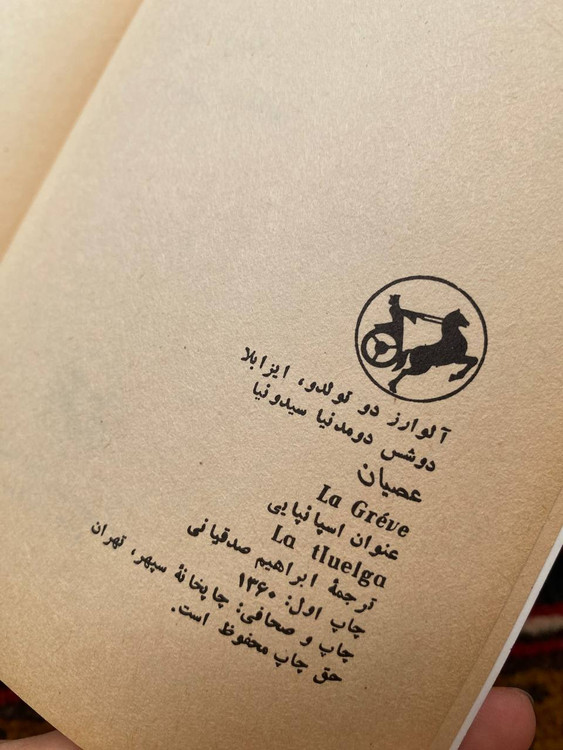 آلوارز دو تولدو، ایزابلا
دوشس دومدنیا سیدونیا
عصیان
La Gréve
عنوان اسپانیایی
La tluelga
ترجمهٔ ابراهیم صدقیانی
چاپ اول: ۱۳۶۰
چاپ و صحافی: چاپخانهٔ سپهر، تهران
حق چاپ محفوظ است.